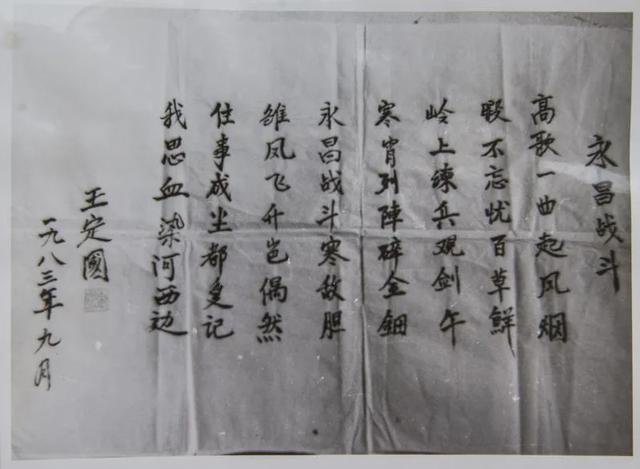 永昌战斗
高歌一曲起风烟
暇不忘忧百草鲜
岭上练兵观剑午
寒宵列陣碎金钿
永昌战斗寒敌胆
雏凤飞升岂偶然
往事成尘都记
我思血染河西边
王定國
一九八三年九月